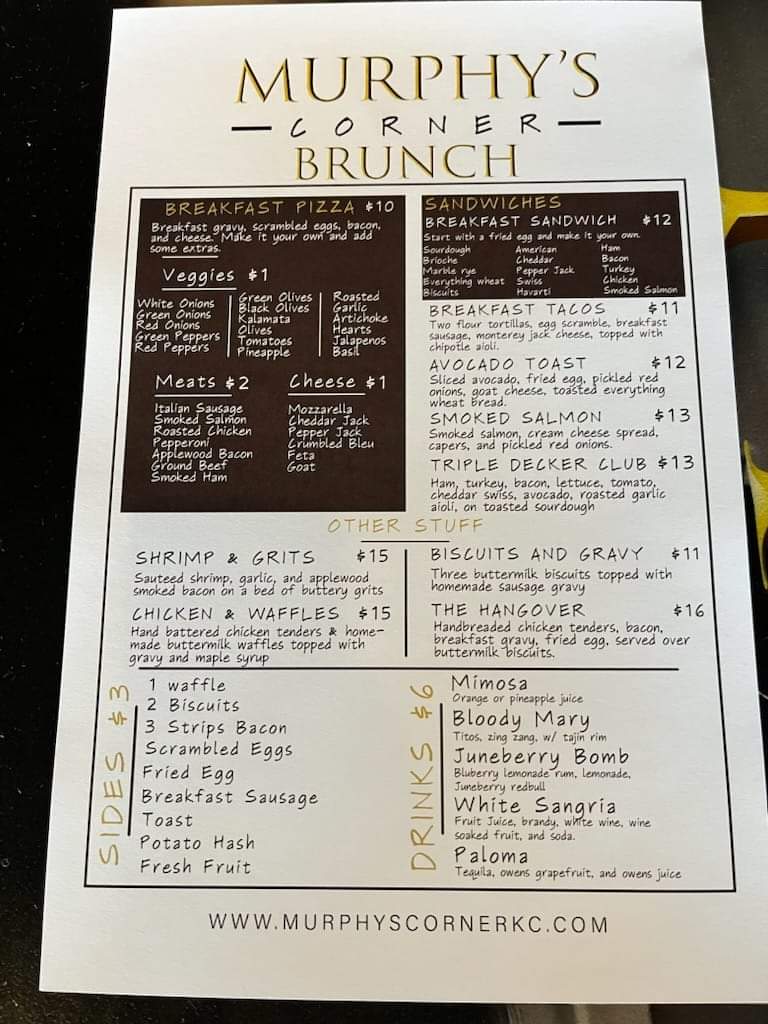 MURPHY'S
CORNER
BRUNCH
BREAKFAST PIZZA $10
Breakfast gravy, scrambled eggs, bacon,
and cheese. Make it your own and add
some extras.
Veggies $1
White Onions
Green Onions
Red Onions
Green Peppers
Red Peppers
Green Olives
Black Olives
Kalamata
Olives
Tomatoes
Pineapple
Roasted
Garlic
Artichoke
Hearts
Jalapenos
Basil
Meats $2
Italian Sausage
Smoked Salmon
Roasted Chicken
Pepperoni
Applewood Bacon
Ground Beef
Smoked Ham
Cheese $1
Mozzarella
Cheddar Jack
Pepper Jack
Crumbled Bleu
Feta
Goat
SANDWICHES
BREAKFAST SANDWICH $12
Start with a fried egg and make it your own.
Sourdough
Brioche
Marble rye
Everything wheat
Biscuits
American
Cheddar
Pepper Jack
Swiss
Havarti
Ham
Bacon
Turkey
Chicken
Smoked Salmon
BREAKFAST TACOS $11
Two flour tortillas, egg scramble, breakfast
sausage, monterey jack cheese, topped with
chipotle aioli.
AVOCADO TOAST $12
Sliced avocado, fried egg, pickled red
onions, goat cheese, toasted everything
wheat bread.
SMOKED SALMON $13
Smoked salmon, cream cheese spread,
capers, and pickled red onions.
TRIPLE DECKER CLUB $13
Ham, turkey, bacon, lettuce, tomato,
cheddar swiss, avocado, roasted garlic
aioli, on toasted sourdough
OTHER STUFF
SHRIMP & GRITS $15
Sauteed shrimp, garlic, and applewood
smoked bacon on a bed of buttery grits
CHICKEN & WAFFLES $15
Hand battered chicken tenders & home-
made buttermilk waffles topped with
gravy and maple syrup
BISCUITS AND GRAVY $11
Three buttermilk biscuits topped with
homemade sausage gravy
THE HANGOVER $16
Handbreaded chicken tenders, bacon,
breakfast gravy, fried egg, served over
buttermilk biscuits.
SIDES $3
1 waffle
2 Biscuits
3 Strips Bacon
Scrambled Eggs
Fried Egg
Breakfast Sausage
Toast
Potato Hash
Fresh Fruit
DRINKS $6
Mimosa
Orange or pineapple juice
Bloody Mary
Titos, zing zang, w/ tajin rim
Juneberry Bomb
Bluberry lemonade rum, lemonade,
Juneberry redbull
White Sangria
Fruit Juice, brandy, white wine, wine
soaked fruit, and soda.
Paloma
Tequila, owens grapefruit, and owens juice
WWW.MURPHYSCORNERKC.COM